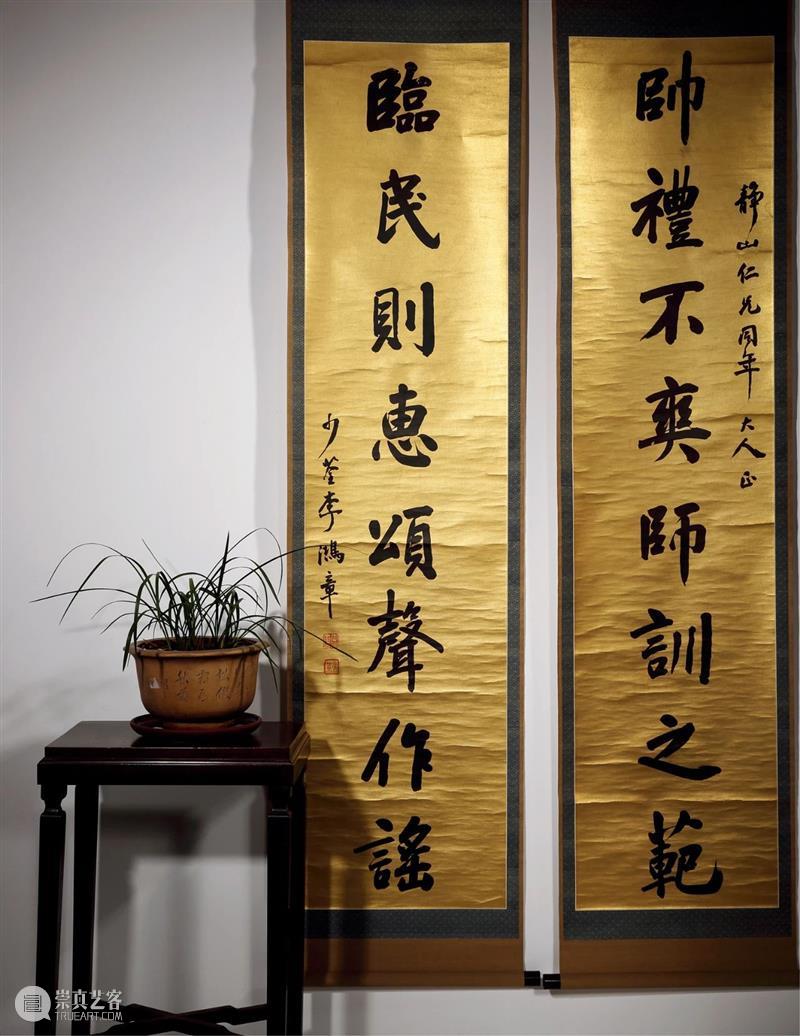 靜山仁兄同年大人正
帥禮不爽師訓之範
臨民則惠頌聲作謠
少荃李鴻章
崇真艺客
TRUEART.COM